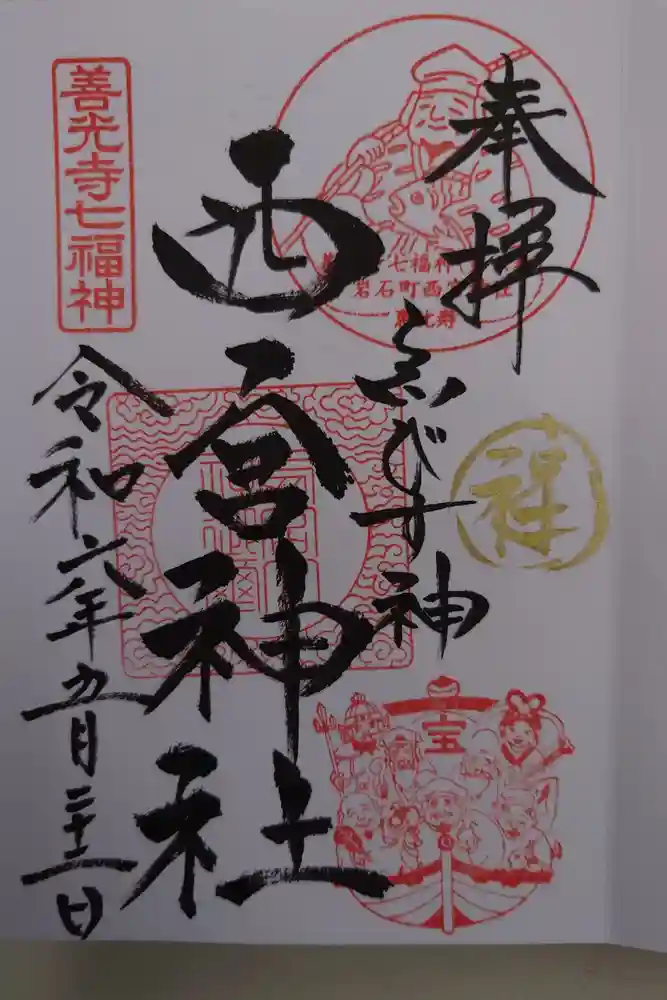 奉拝
ゑびす神
西宮神社
令和六年五月二十二日
善光寺七福神
岩石町西宮神社
恵比寿
祥
宝